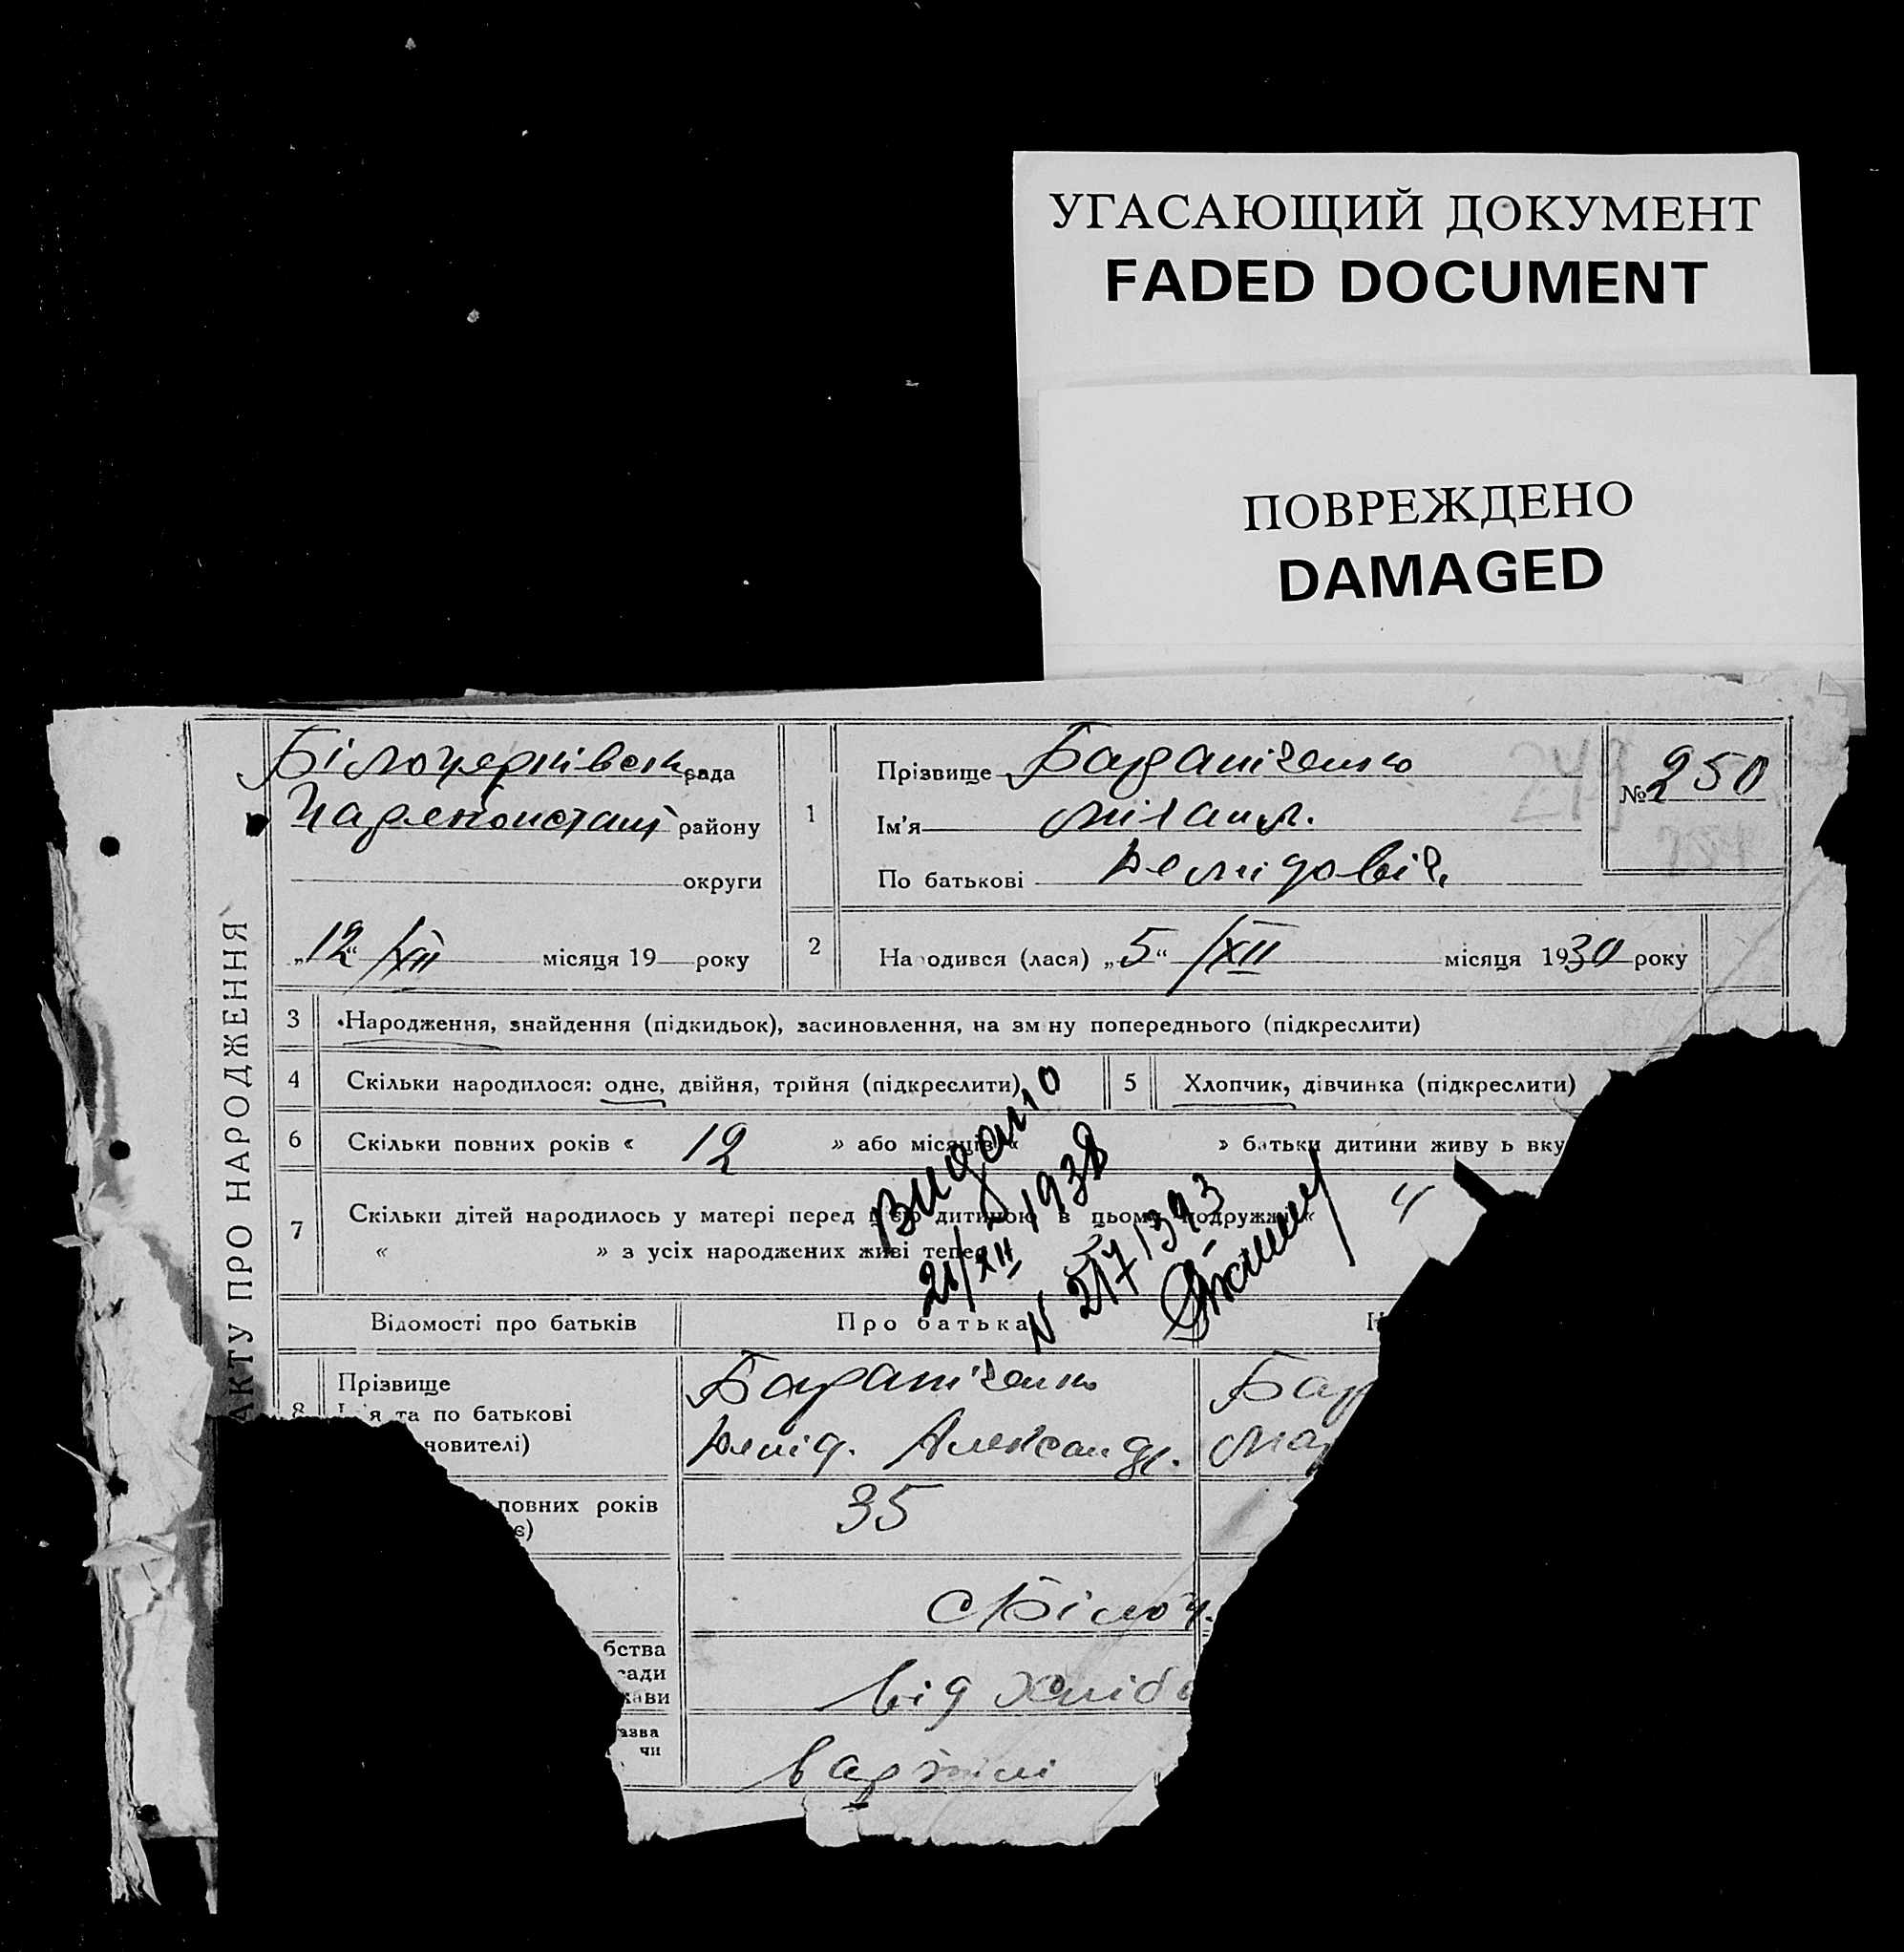 УГАСАЮЩИЙ ДОКУМЕНТ
FADED DOCUMENT
ПОВРЕЖДЕНО
DAMAGED
АКТУ ПРО НАРОДЖЕННЯ
Білоцерківськ рада
району
округи
„12“ /XII місяця 19 року
1
Прізвище
Ім'я
По батькові Демидовіч.
№ 250
2
На одився (лася) „5“ /XII місяця 1930 року
3 Народження, знайдення (підкидьок), засиновлення, на зм ну попереднього (підкреслити)
4 Скільки народилося: одне, двійня, трійня (підкреслити)
5 Хлопчик, дівчинка (підкреслити)
6 Скільки повних років « 12 » або місяців « » батьки дитини живу ь вку
7 Скільки дітей народилось у матері перед цією дитиною в цьому подружжі « 4
« » з усіх народжених живі тепер
Видано
21/XII 1938
N 217/393
Відомості про батьків
Про батька
8
Прізвище
я та по батькові
новителі)
Демід. Александр.
повних років
є)
35
с Білоч.
бства
ради
жави
від хліб
азва
чи